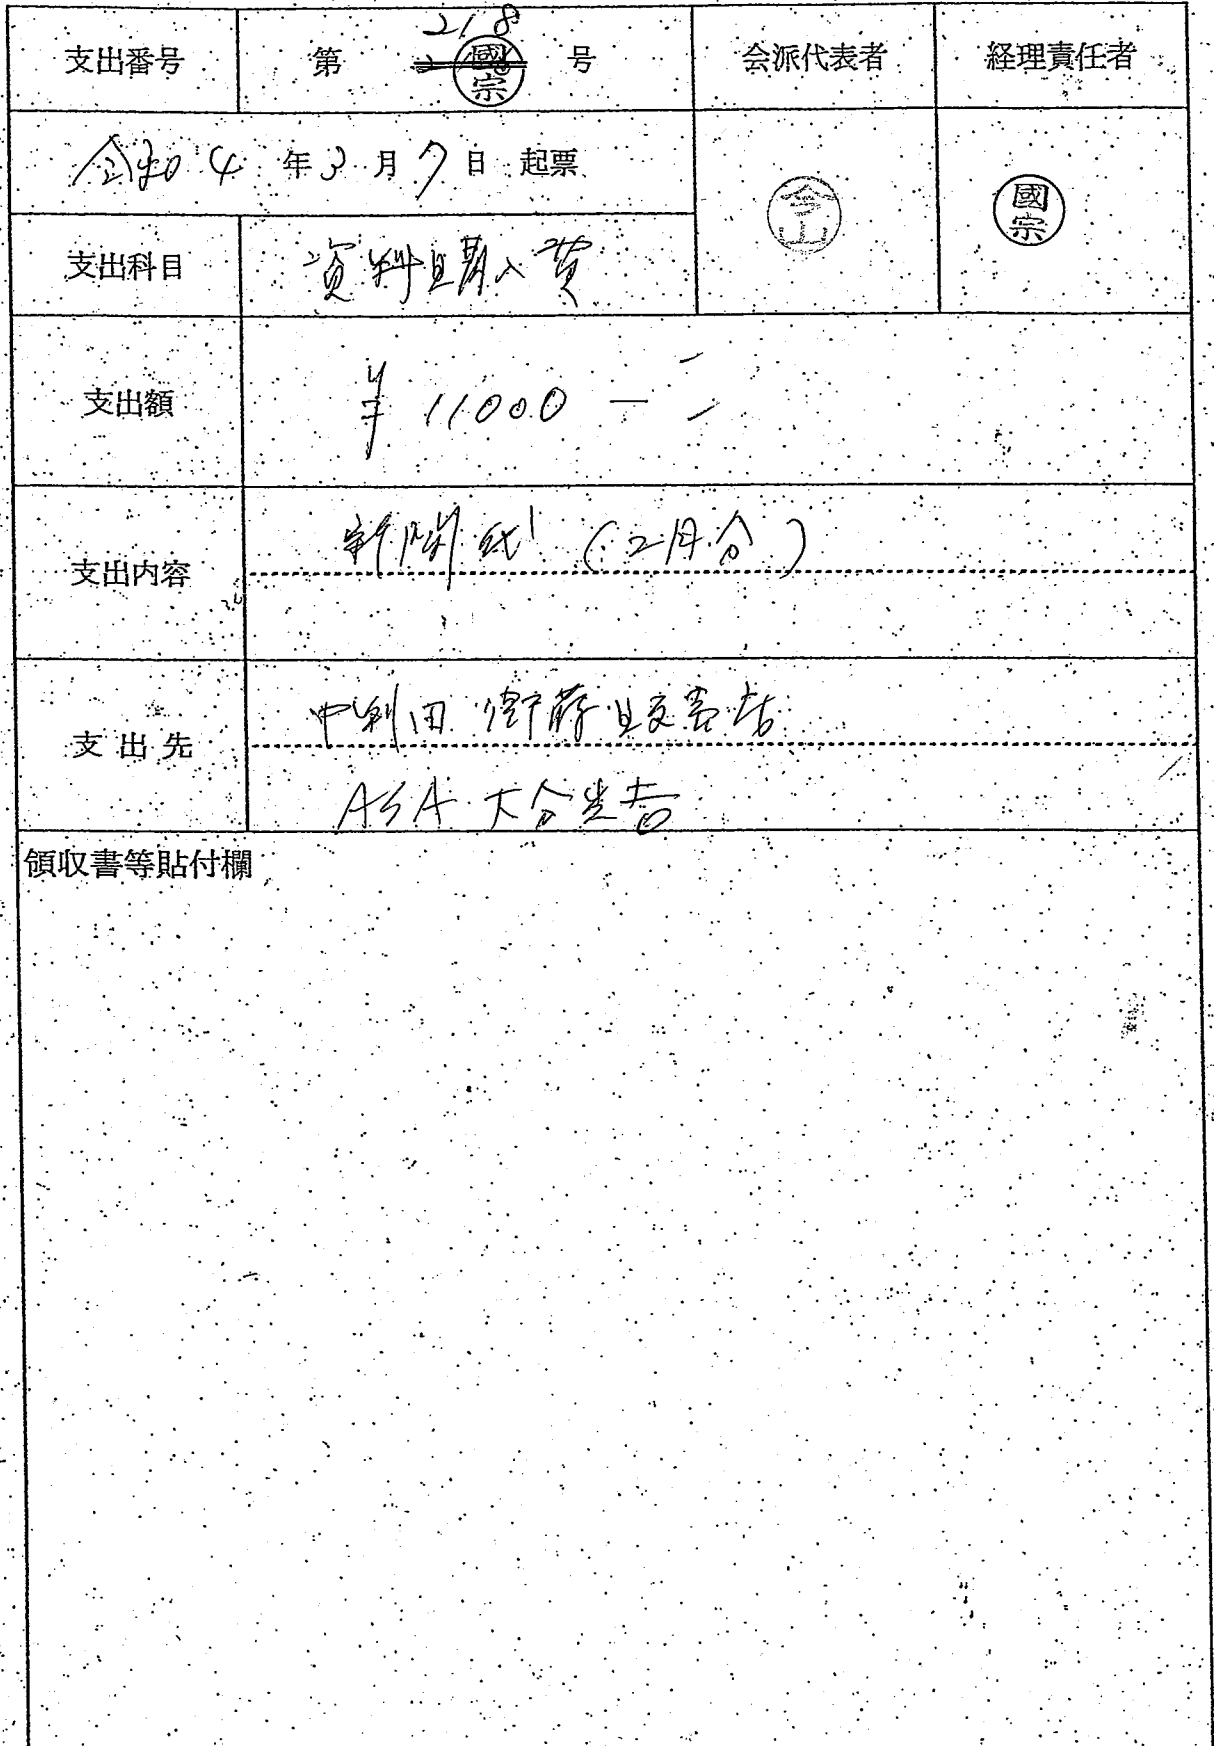 支出番号 第 218 号 会派代表者 経理責任者
國宗
令和4年3月7日 起票
今山 國宗
支出科目 資料購入費
支出額 ¥11000-
支出内容 新聞代(2月分)
支出先
ASA 大分
領収書等貼付欄